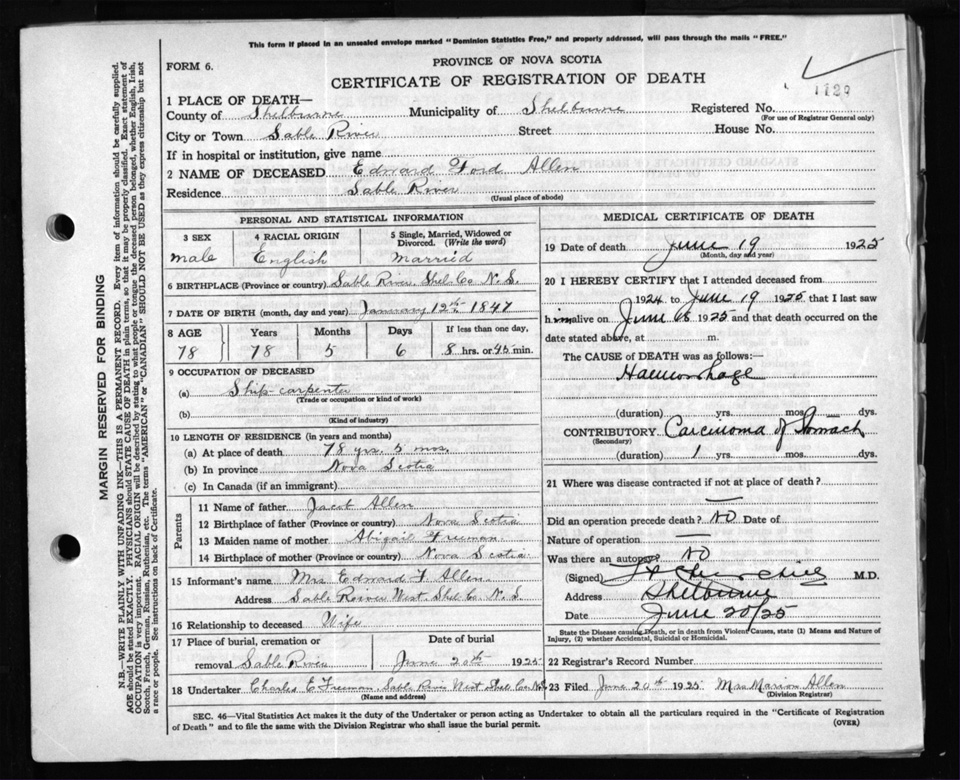 This form if placed in an unsealed envelope marked "Dominion Statistics Free," and properly addressed, will pass through the mails "FREE."
FORM 6.
PROVINCE OF NOVA SCOTIA
CERTIFICATE OF REGISTRATION OF DEATH
1 PLACE OF DEATH—
County of Shelburne Municipality of Shelburne Registered No.
(For use of Registrar General only)
City or Town Sable River Street House No.
If in hospital or institution, give name
2 NAME OF DECEASED Edward Ford Allen
Residence Sable River
(Usual place of abode)
PERSONAL AND STATISTICAL INFORMATION
3 SEX 4 RACIAL ORIGIN 5 Single, Married, Widowed or Divorced. (Write the word)
male English Married
6 BIRTHPLACE (Province or country) Sable River, Shel. Co N. S.
7 DATE OF BIRTH (month, day and year) January 12th 1847
8 AGE Years Months Days If less than one day,
78 78 5 6 8 hrs. or 45 min.
9 OCCUPATION OF DECEASED
(a) Ship-carpenter
(Trade or occupation or kind of work)
(b)
(Kind of industry)
10 LENGTH OF RESIDENCE (in years and months)
(a) At place of death 78 yrs. 5 mos.
(b) In province Nova Scotia
(c) In Canada (if an immigrant)
Parents
11 Name of father Jacob Allen
12 Birthplace of father (Province or country) Nova Scotia
13 Maiden name of mother Abigail Freeman
14 Birthplace of mother (Province or country) Nova Scotia
15 Informant's name Mrs Edward F Allen
Address Sable River West. Shel. Co. N. S
16 Relationship to deceased Wife
17 Place of burial, cremation or removal Sable River
Date of burial June 20th 1925
18 Undertaker Charles E Freeman, Sable River West Shel Co. N.S.
(Name and address)
MEDICAL CERTIFICATE OF DEATH
19 Date of death June 19 1925
(Month, day and year)
20 I HEREBY CERTIFY that I attended deceased from
1924 to June 19 1925 that I last saw
him alive on June 1925 and that death occurred on the
date stated above, at m.
The CAUSE of DEATH was as follows:—
Haemorrhage
(duration) yrs. mos. dys.
CONTRIBUTORY Carcinoma of Stomach
(Secondary)
(duration) 1 yrs. mos. dys.
21 Where was disease contracted if not at place of death?
—
Did an operation precede death? No Date of
Nature of operation —
Was there an autopsy? No
(Signed) M.D.
Address Shelburne
Date June 20/25
State the Disease causing Death, or in death from Violent Causes, state (1) Means and Nature of
Injury, (2) whether Accidental, Suicidal or Homicidal.
22 Registrar's Record Number
23 Filed June 20th 1925 Mrs Marion Allen
(Division Registrar)
SEC. 46—Vital Statistics Act makes it the duty of the Undertaker or person acting as Undertaker to obtain all the particulars required in the "Certificate of Registration
of Death" and to file the same with the Division Registrar who shall issue the burial permit.
(OVER)
MARGIN RESERVED FOR BINDING
N.B.—WRITE PLAINLY WITH UNFADING INK—THIS IS A PERMANENT RECORD. Every item of information should be carefully supplied.
AGE should be stated EXACTLY. PHYSICIANS should STATE CAUSE OF DEATH in plain terms, so that it may be properly classified. Exact statement of
OCCUPATION is very important. RACIAL ORIGIN will be described by stating to what people or tongue the deceased person belonged, whether English, Irish,
Scotch, French, German, Russian, Ruthenian, etc. The terms "AMERICAN" or "CANADIAN" SHOULD NOT BE USED as they express citizenship but not
a race or people. See instructions on back of Certificate.